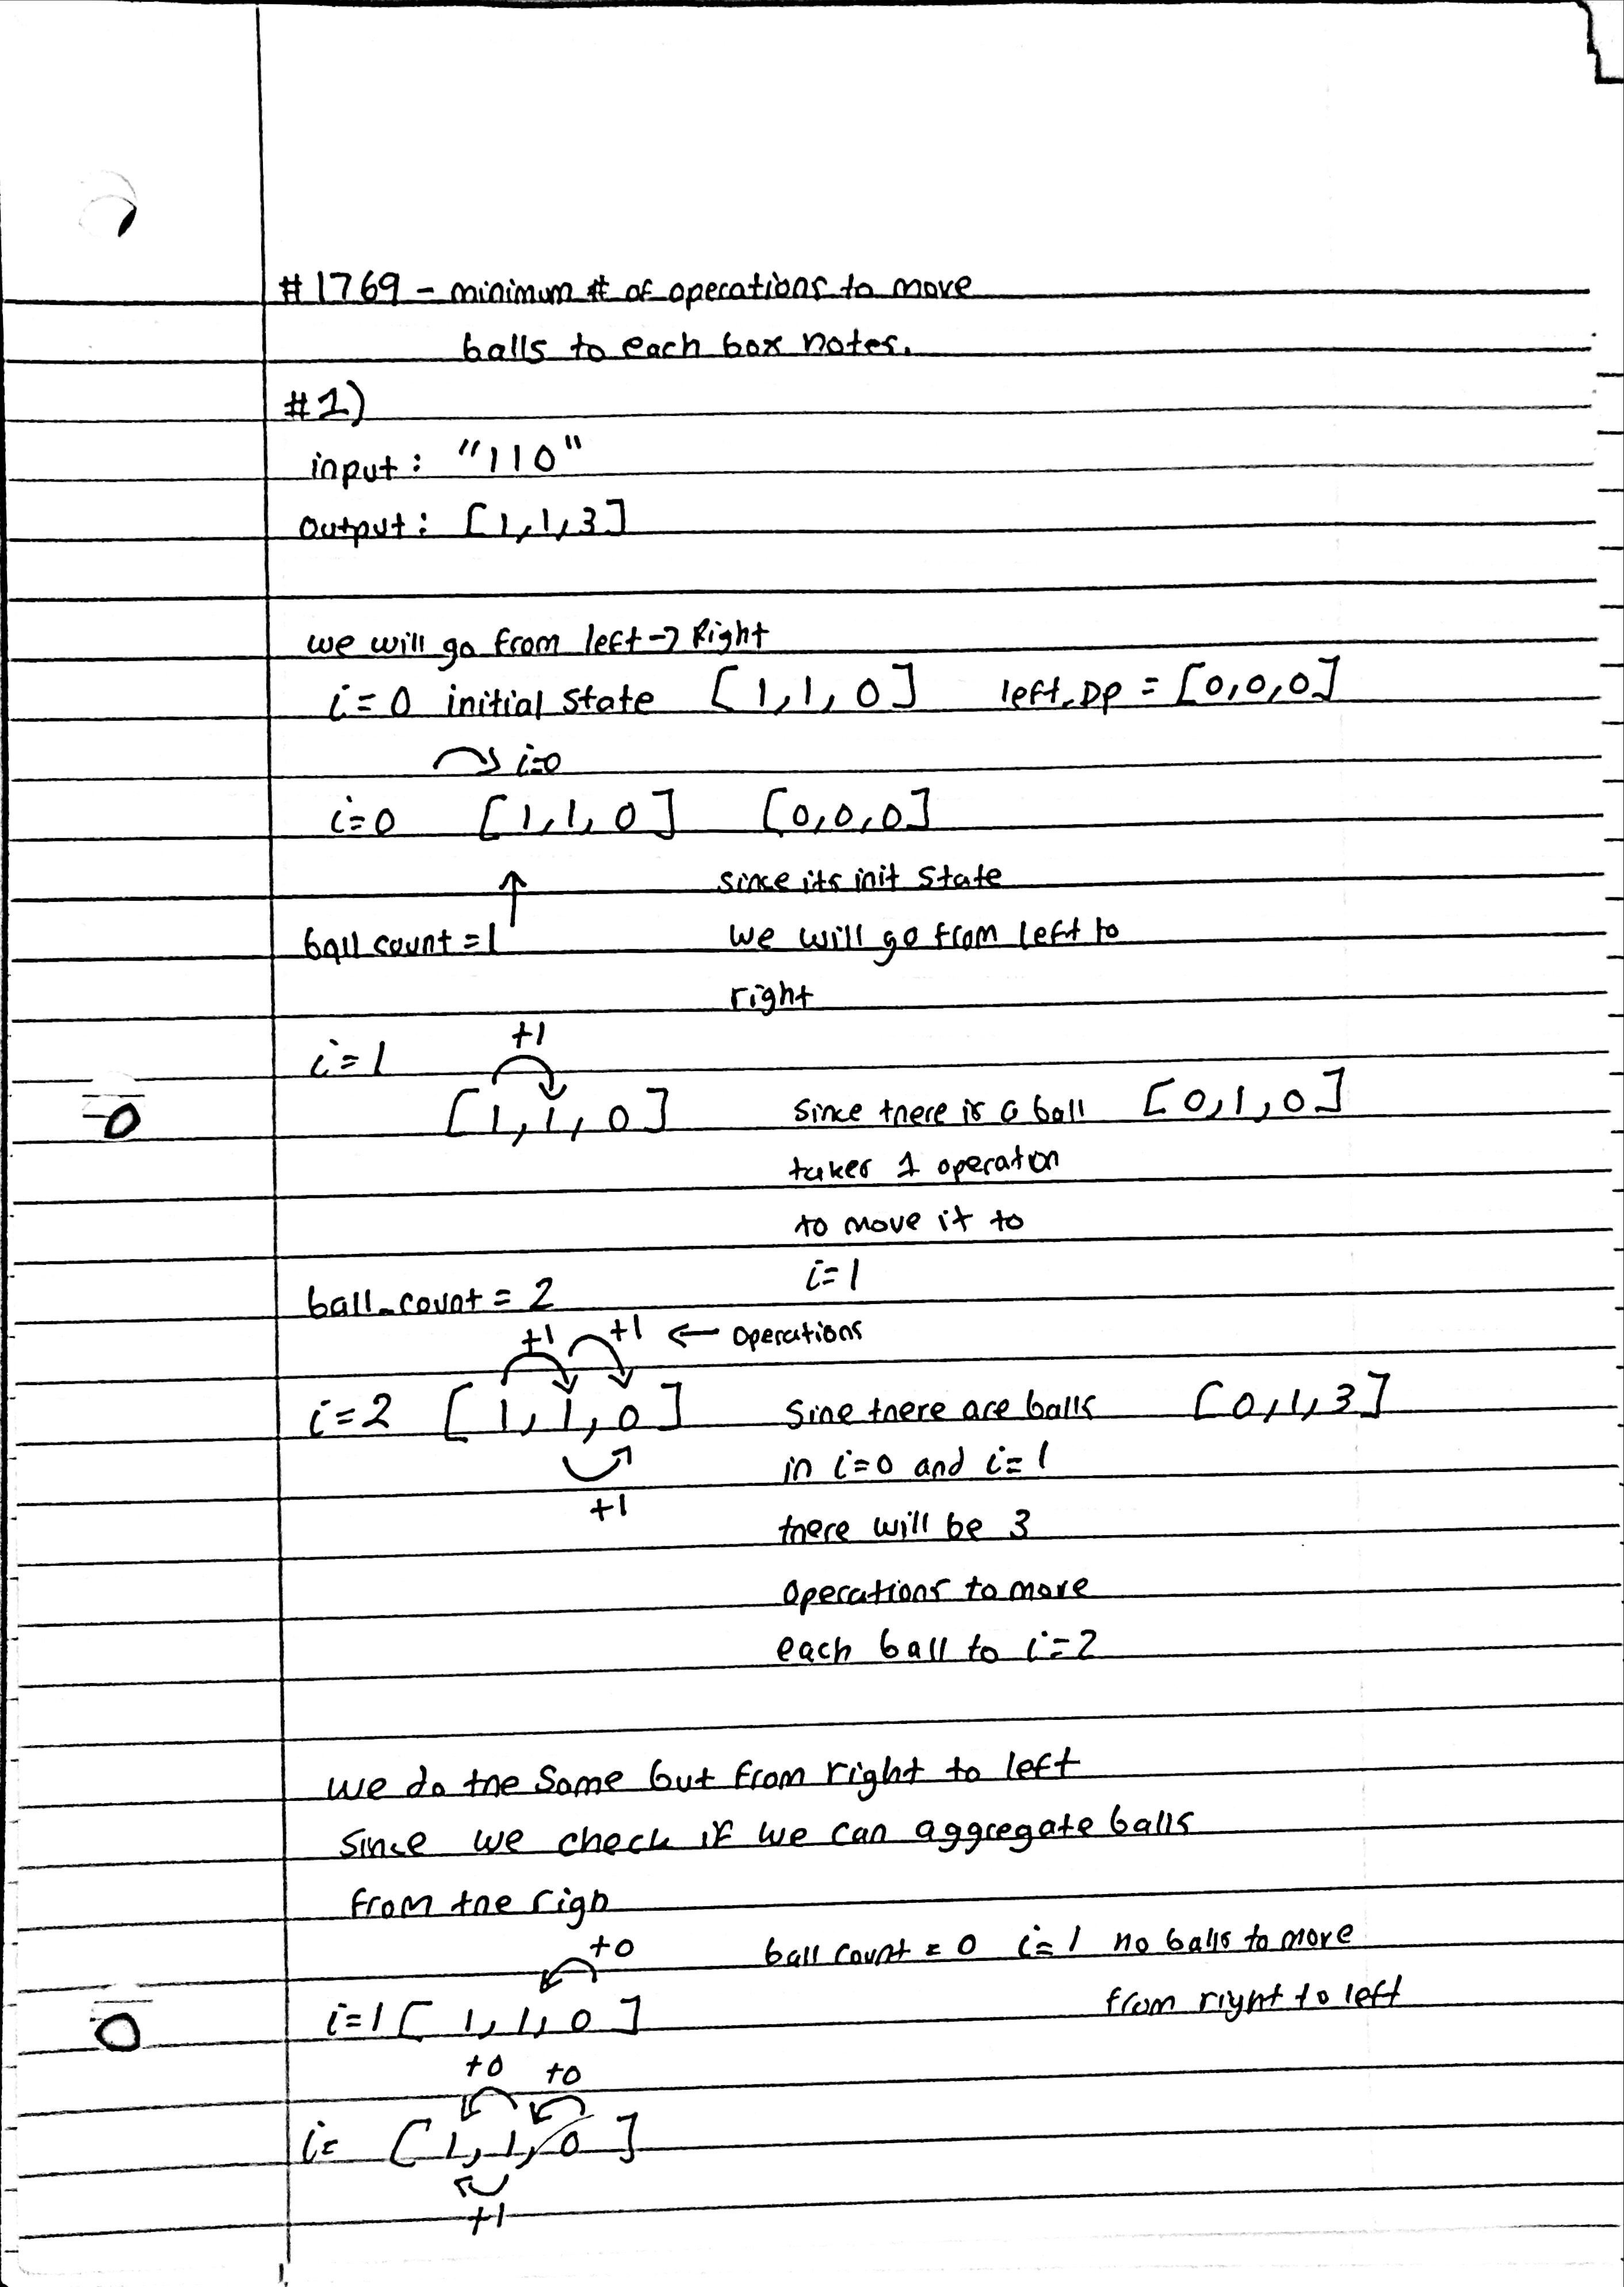 #1769 - minimum # of operations to move
balls to each box notes.
#1)
input: "110"
output: [1,1,3]
we will go from left → Right
i=0 initial state [1,1,0] left_Dp = [0,0,0]
i=0
i=0 [1,1,0] [0,0,0]
since its init state
ball count = 1 we will go from left to
right
+1
i=1
[1,1,0] since there is a ball [0,1,0]
takes 1 operation
to move it to
i=1
ball_count = 2
+1 +1 ← operations
i=2 [1,1,0] Sine there are balls [0,1,3]
in i=0 and i=1
+1
there will be 3
operations to move
each ball to i=2
we do the same but from right to left
since we check if we can aggregate balls
from the righ
+0 ball count = 0 i=1 no balls to move
from right to left
i=1 [1,1,0]
+0 +0
i= [1,1,0]
+1